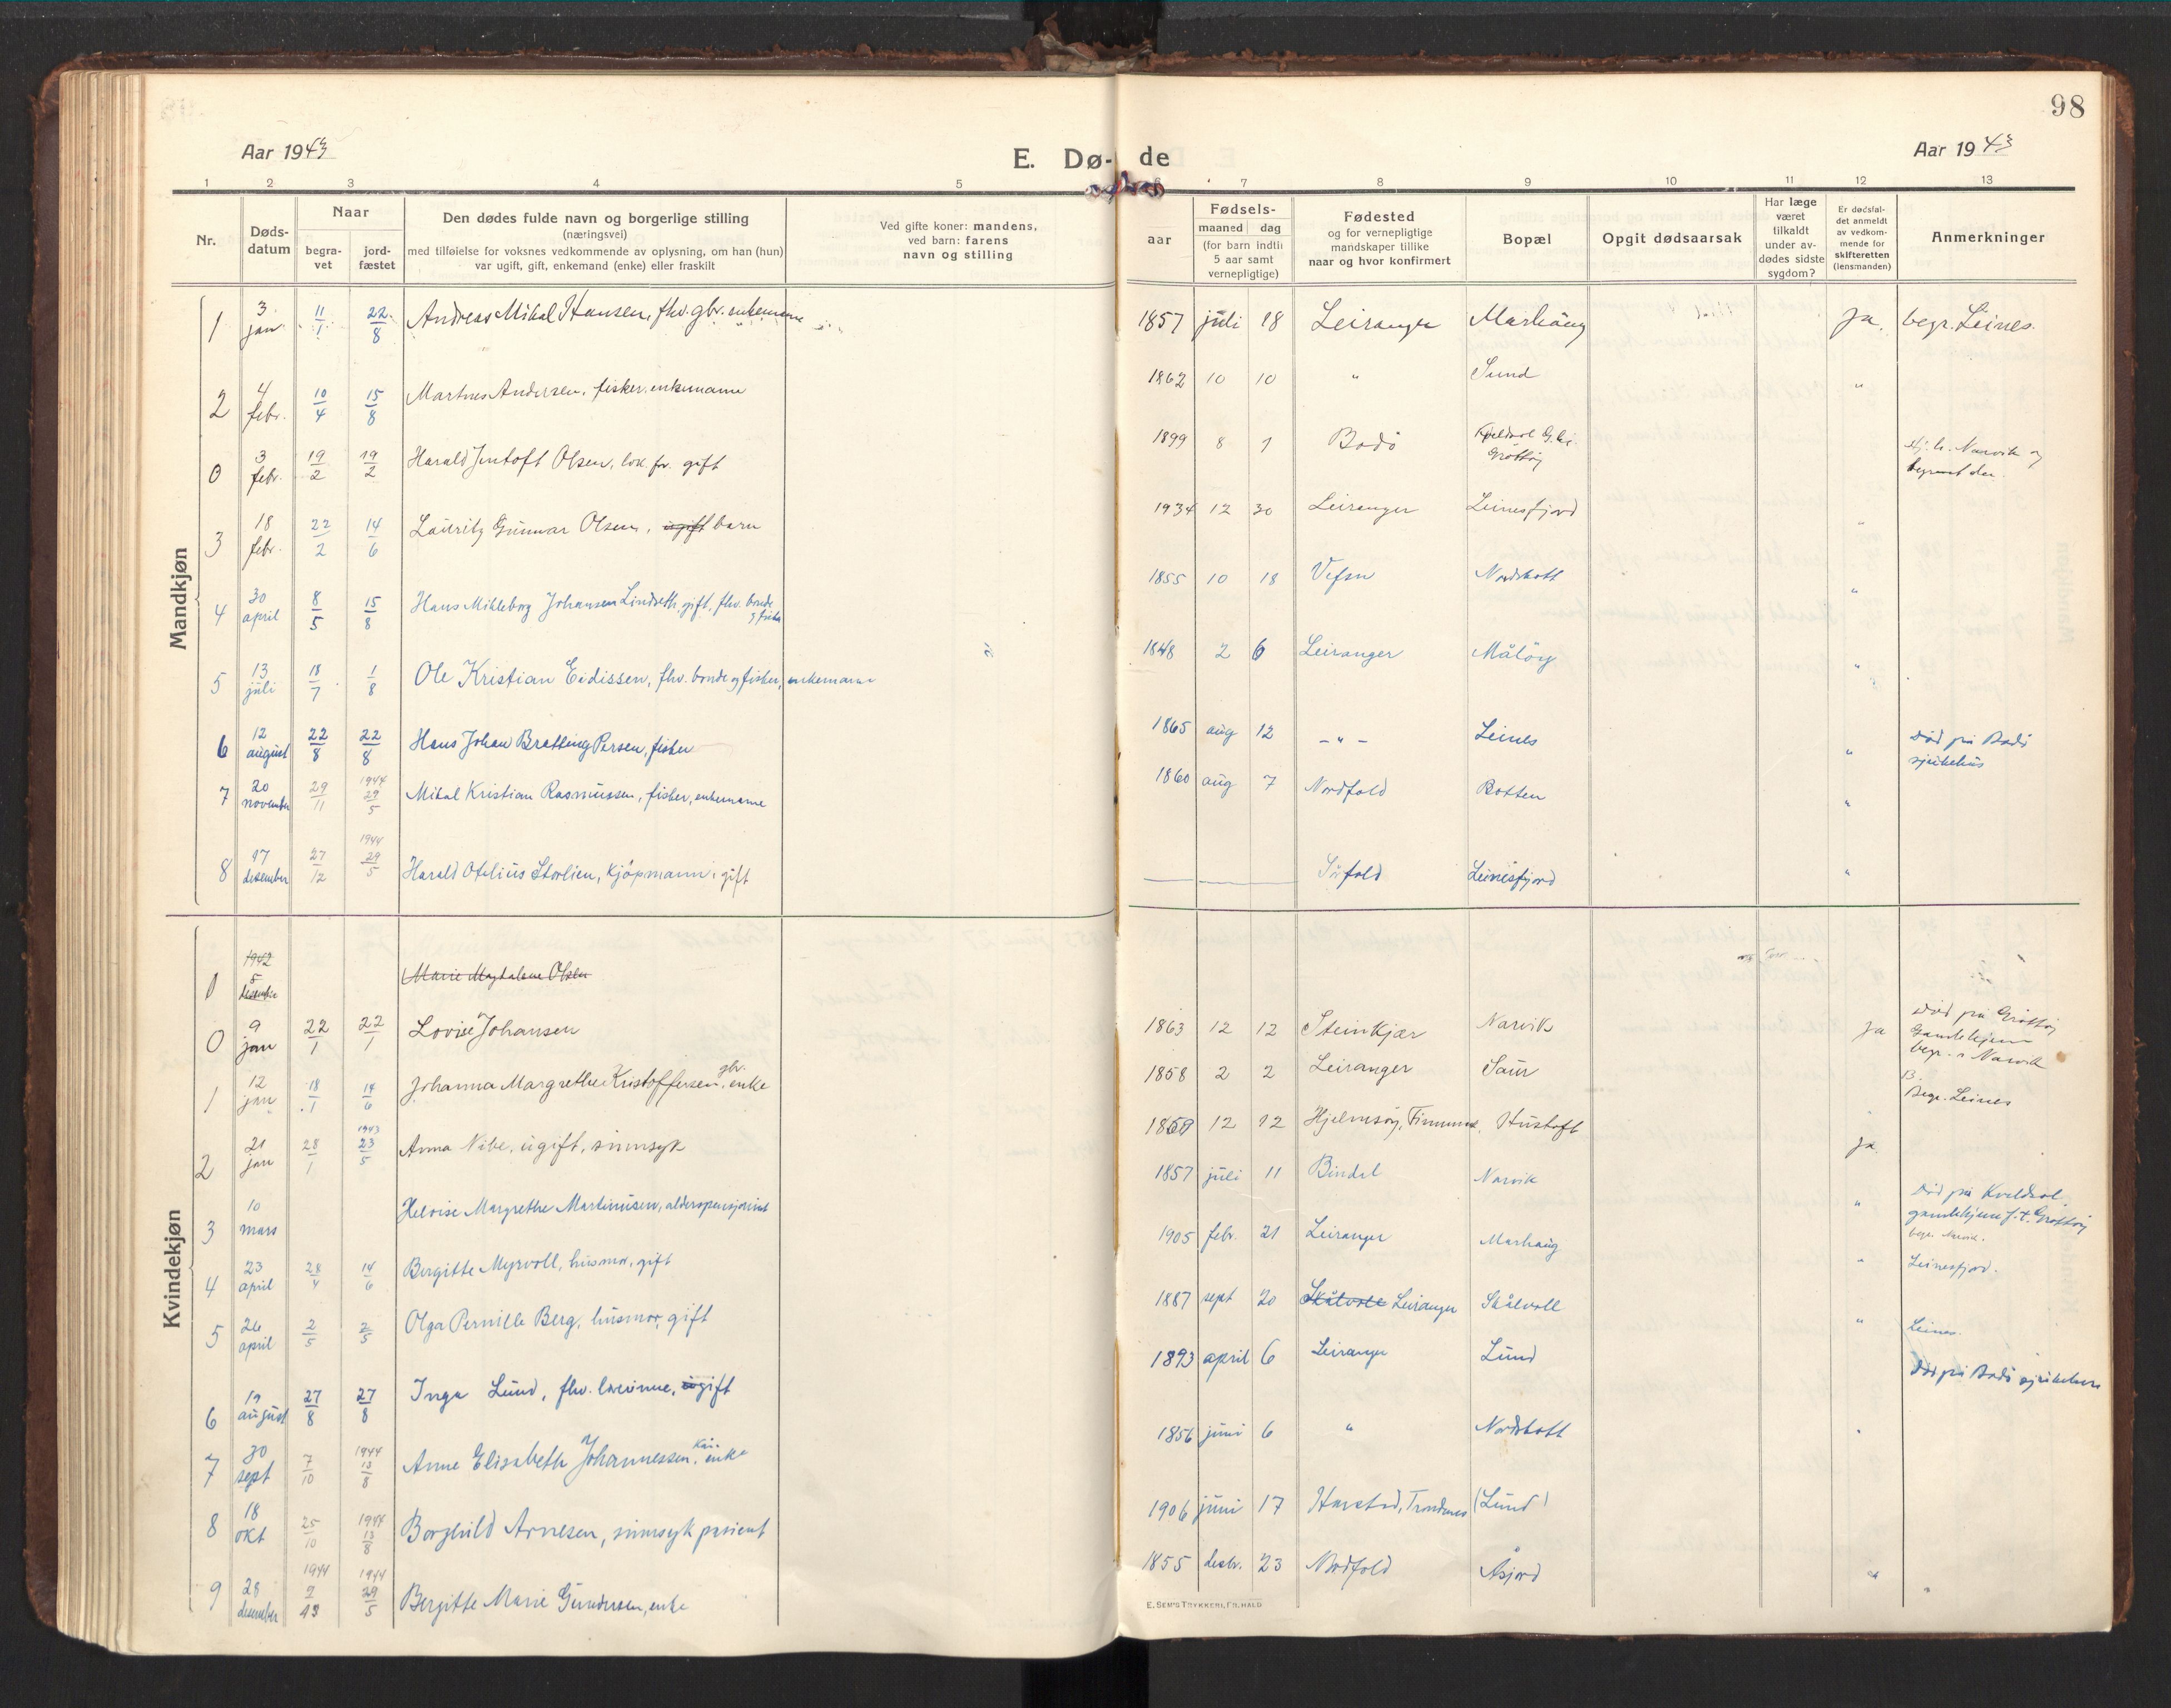 98
Aar 1943
E. Dø- de
Aar 1943
1 2 3 4 5 6 7 8 9 10 11 12 13
Nr.
Døds-
datum
Naar
begra-
vet
jord-
fæstet
Den dødes fulde navn og borgerlige stilling
(næringsvei)
med tilføielse for voksnes vedkommende av oplysning, om han (hun)
var ugift, gift, enkemand (enke) eller fraskilt
Ved gifte koner: mandens,
ved barn: farens
navn og stilling
Fødsels-
aar
maaned dag
(for barn indtil
5 aar samt
vernepligtige)
Fødested
og for vernepligtige
mandskaper tillike
naar og hvor konfirmert
Bopæl
Opgit dødsaarsak
Har læge
været
tilkaldt
under av-
dødes sidste
sygdom?
Er dødsfal-
det anmeldt
av vedkom-
mende for
skifteretten
(lensmanden)
Anmerkninger
Mandkjøn
1 3 jan. 11/1 22/8 Andreas Mikal Hansen, fhv. gbr. enkemann 1857 juli 18 Leiranger Marhaug Ja. begr. Leines.
2 4 febr. 10/4 15/8 Martines Andersen, fisker, enkemann 1862 10 10 " Sund "
0 3 febr. 19/2 19/2 Harald Jentoft Olsen, lok. før. gift 1899 8 1 Bodö Kveldsol G.hj.
Gröttöy
Narvik og
begravet der.
3 18 febr. 22/2 14/6 Lauritz Gunnar Olsen, ugift barn 1934 12 30 Leiranger Leinesfjord "
4 30 april 8/5 15/8 Hans Mikleborg Johansen Lindseth, gift, fhv. bonde
og fisker 1855 10 18 Vefsn Nordskott "
5 13 juli 18/7 1/8 Ole Kristian Eidissen, fhv. bonde og fisker, enkemann 1848 2 6 Leiranger Målöy "
6 12 august 22/8 22/8 Hans Johan Bratting Persen, fisker 1865 aug 12 - " - Leines " Död på Bodö
sjukehus
7 20 november 29/11 1944 29/5 Mikal Kristian Rasmussen, fisker, enkemann 1860 aug 7 Nordfold Botten "
8 17 desember 27/12 1944 29/5 Harald Otelius Storlien, kjöpmann, gift Sörfold Leinesfjord "
Kvindekjøn
1 1942 5 desember Marie Magdalene Olsen
0 9 jan 22/1 22/1 Lovise Johansen 1863 12 12 Steinkjær Narvik Ja Död på Gröttöy
Gamlehjem
begr. i Narvik
1 12 jan 18/1 14/6 Johanna Margrethe Kristoffersen, gbr. enke 1858 2 2 Leiranger Saur Begr. Leines
2 21 jan 28/1 1943 23/5 Anna Nibe, ugift, sinnsyk 12 12 Hjelmsöy, Finnmark, Hustoft Ja.
3 10 mars Heloise Margrethe Martinusen, alderspensjonist 1857 juli 11 Bindal Narvik " Död på Kveldsol
gamlehjem f.t. Gröttöy
begr. Narvik.
4 23 april 28/4 14/6 Bergitte Myrvoll, husmor, gift 1905 febr. 21 Leiranger Marhaug " Leinesfjord.
5 26 april 2/5 2/5 Olga Pernille Berg, husmor, gift 1887 sept 20 Skålvoll Leiranger Skålvoll " Leines.
6 august 27/8 27/8 Inga Lund, fhv. lærerinne, ugift 1893 april 6 Leiranger Lund Död på Bodö sjukehus
7 30 sept 7/10 1944 13/8 Anne Elisabeth Johannessen, enke 1856 juni 6 " Nordskott "
8 18 okt 25/10 1944 13/8 Borghild Arnesen, sinnsyk pasient 1906 juni 17 Harstad, Trondenes (Lund)
9 28 desember 1944 1944 29/5 Bergitte Marie Gundersen, enke 1855 desbr. 23 Nordfold Åsjord "
E. SEM'S TRYKKERI, FR.HALD